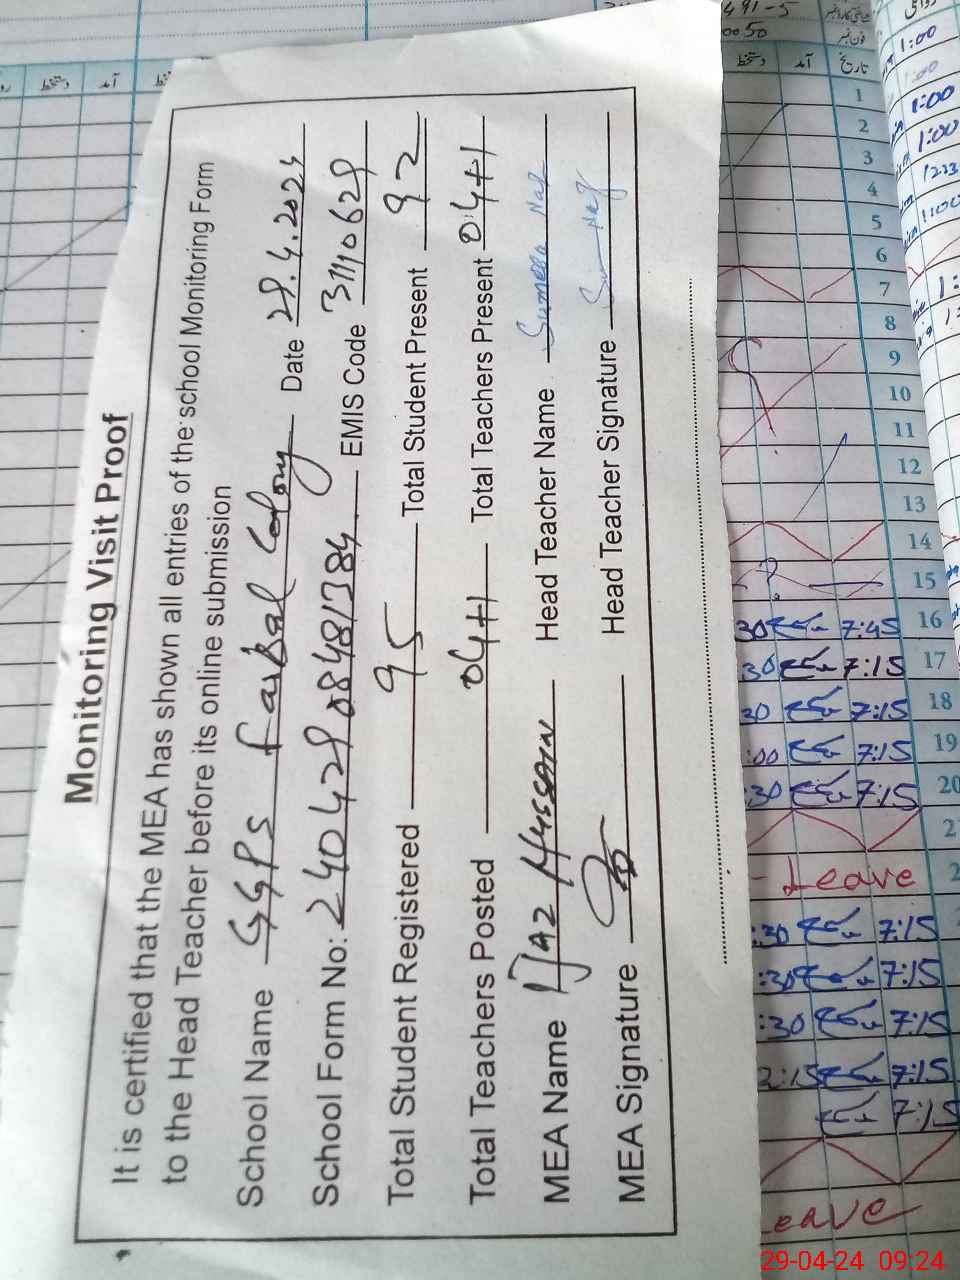 Monitoring Visit Proof
It is certified that the MEA has shown all entries of the school Monitoring Form
to the Head Teacher before its online submission
School Name GGPS Faisal Colony Date 29.4.2024
School Form No: 24042908481384 EMIS Code 31110629
Total Student Registered 95 Total Student Present 92
Total Teachers Posted 04+1 Total Teachers Present 04+1
MEA Name Ijaz Hussain Head Teacher Name Sumera Naz
MEA Signature Head Teacher Signature
491-5
0050
دستخط آمد
دستخط آمد تاریخ
1
2
3
4
5
6
7
8
9
10
11
12
13
14
15
:30 7:45 16
:30 7:15 17
:30 7:15 18
:00 7:15 19
:30 7:15 20
Leave
:30 7:15
:30 7:15
:30 7:15
2:15 7:15
7:15
eave
1:00
1:00
1:00
1:00
29-04-24 09:24